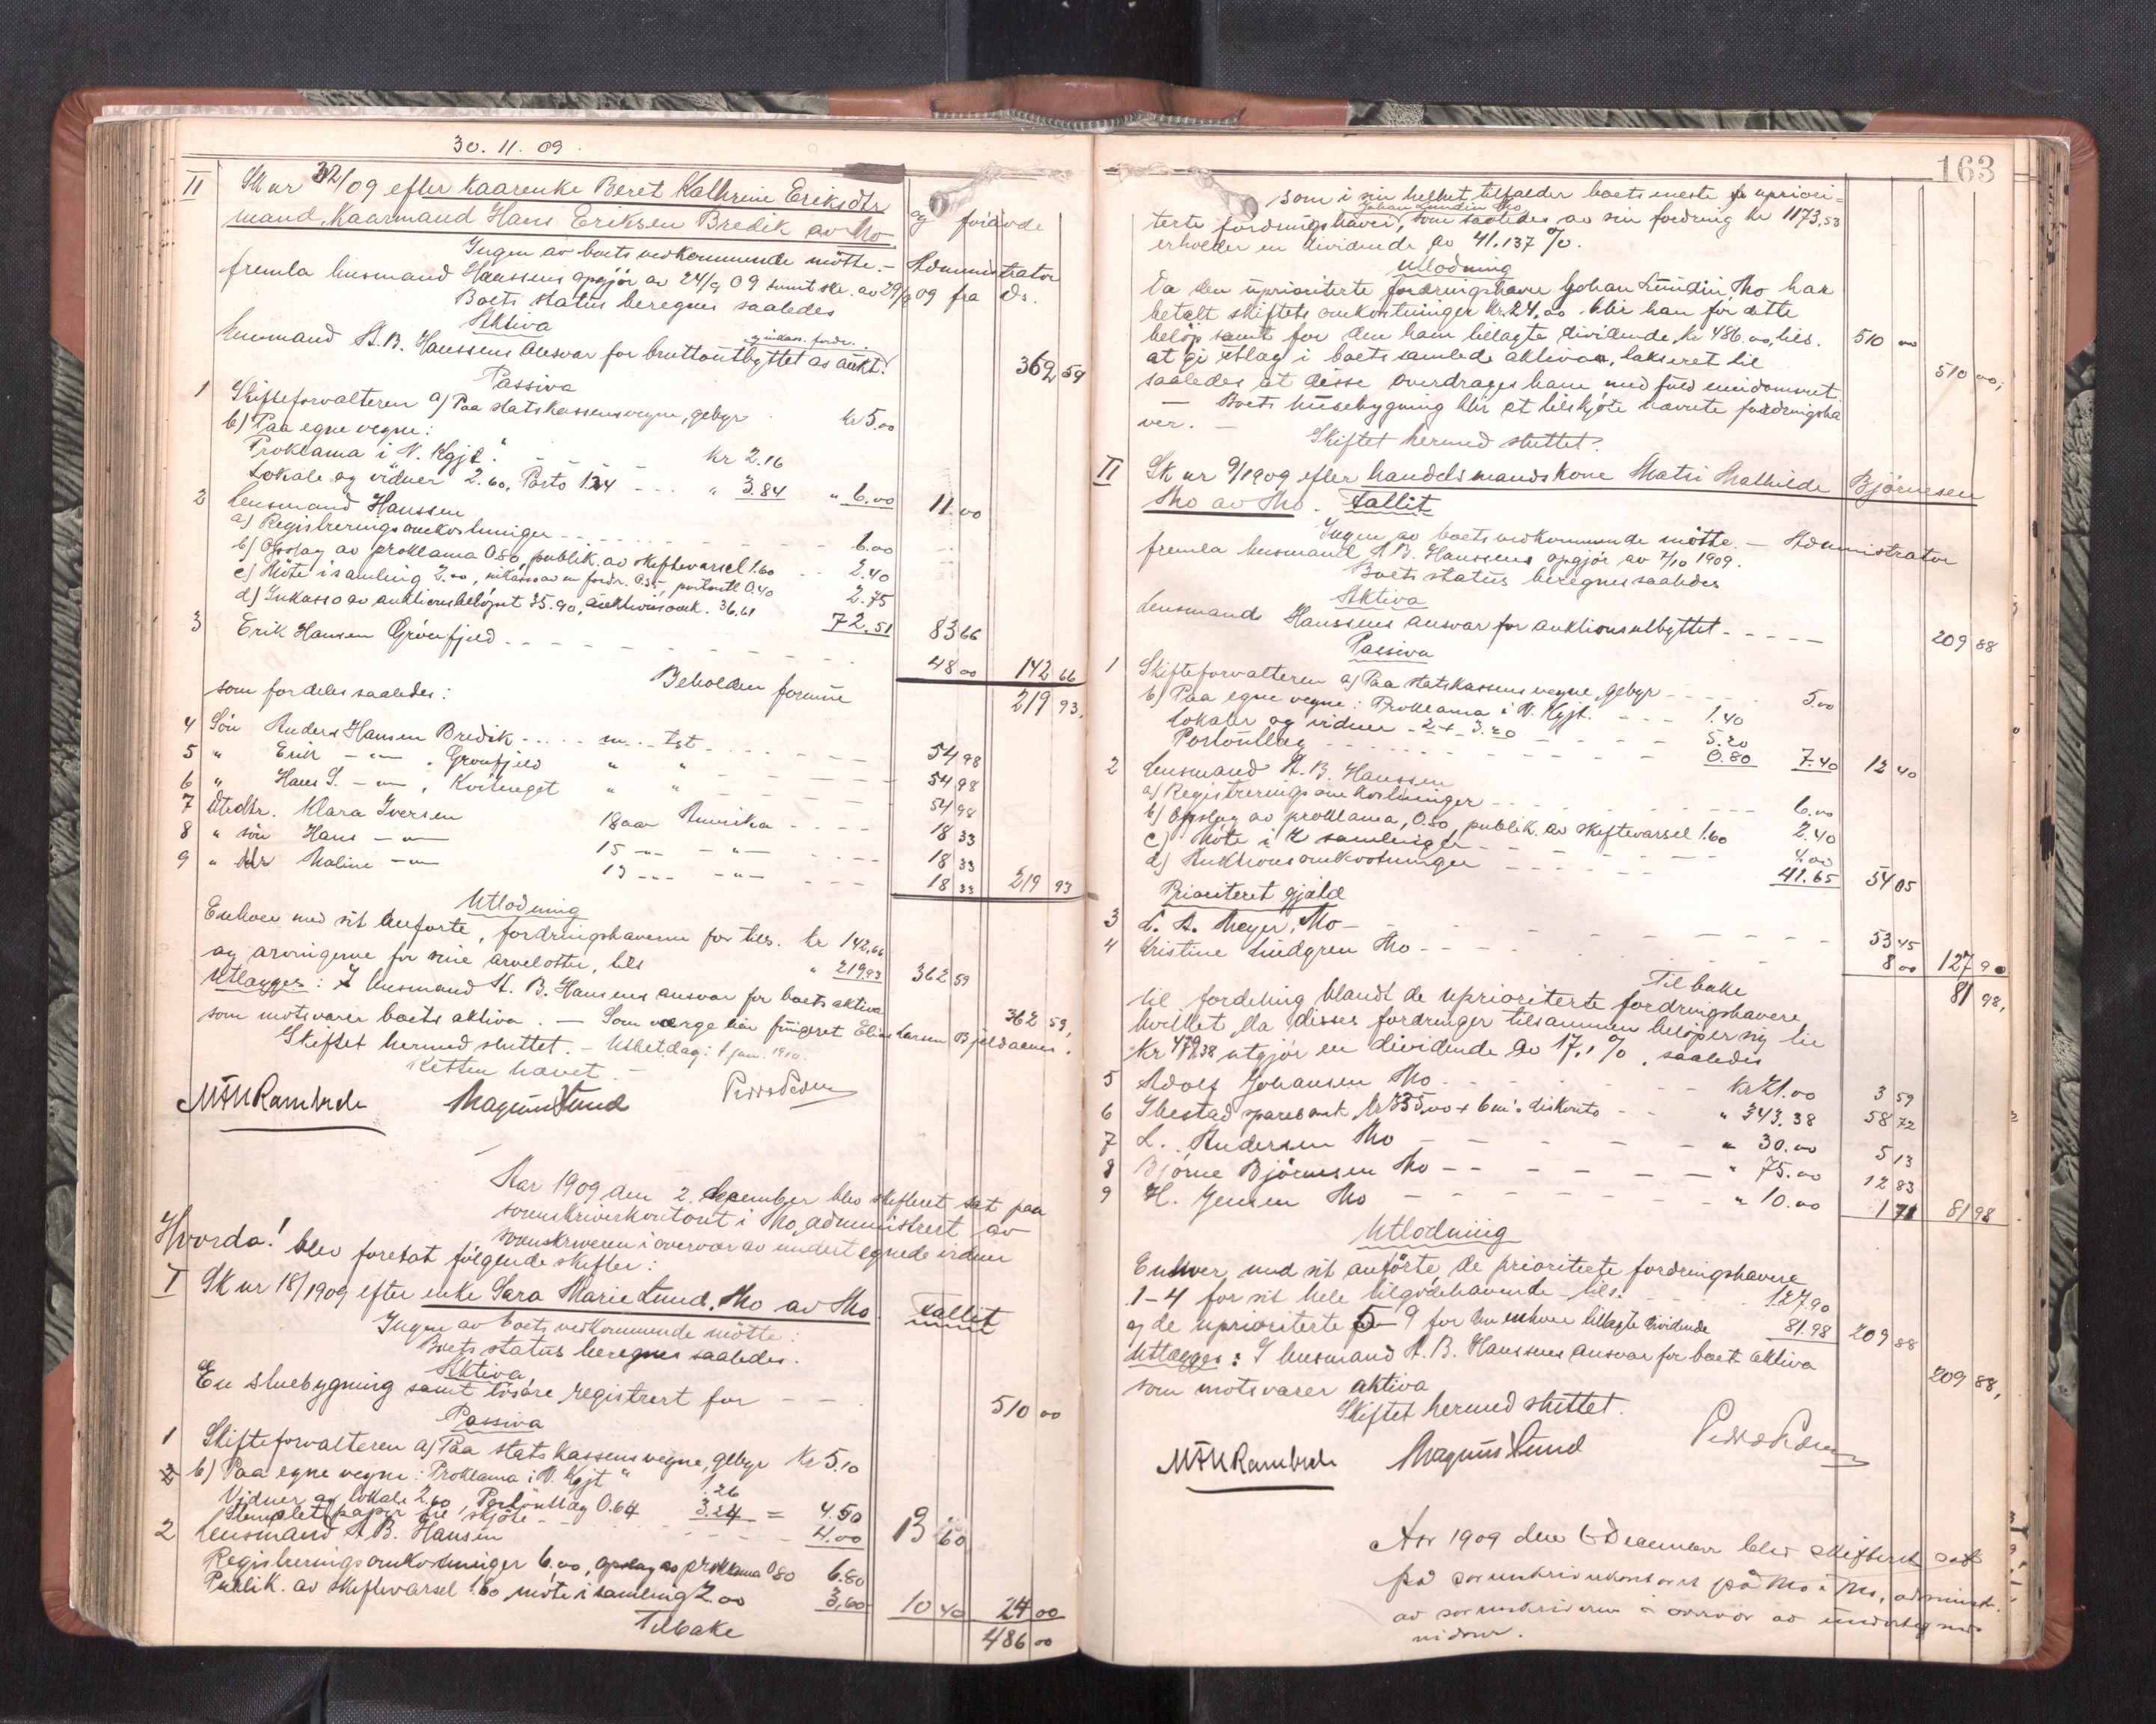 30. 11. 09.
II Sk nr 32/09 efter Kaarenke Beret Kathrine Eriksdtr og forávde
mand, Kaarmand Hans Eriksen Bredik av Mo
Ingen av boets vedkommende mötte. - Administrator
fremla lensmand Hanssens opgjör av 24/9 09 samt skr. av 29/9 09 fra ds.
Boets status beregnes saaledes
Aktiva
og inkass. fordr.
Lensmand A. B. Hanssens ansvar for bruttoutbyttet as aukt. 362 59
Passiva
1 Skifteforvalteren a) Paa statskassens vegne, gebyr kr 5.00
b) Paa egne vegne:
Proklama i N. Kgjt. " - - - kr 2.16
Lokale og vidner 2.60, Porto 1.24 - - - " 3.84 " 6.00 11 00
2 Lensmand Hanssen
a) Registreringsomkostninger - - - 6.00
b) Opslag av proklama 0.80, publik. av skiftevarsel 1.60 - - 2.40
c) Möte i samling 2.00, inkasso av en fordr. 0.35, portoutl 0.40 2.75
d) Inkasso av auktionsbelöpet 35.90, auktionsomk. 36.61 72.51 83 66
3 Erik Hansen Grönfjeld - - - 48 00 142 66
Beholden formue 219 93,
som fordeles saaledes:
4 Sön Anders Hansen Bredik - - - m - - tgt - - - 54 98
5 " Erik - " - , Grönfjeld " " - - - 54 98
6 " Hans S. - " - , Kvitneget " " - - - 54 98
7 Dtrdtr. Klara Iversen 18 aar Amerika - - - 18 33
8 " sön Hans - " - 15 - " - - " - - - - 18 33
9 " dtr Maline - " - 13 - " - - " - - - - 18 33 219 93
Utlodning
Enhver med sit anförte, fordringshaverne for tils. kr 142.66
og arvingerne for sine arvelotter, tils " 219.93 362 59
Utlægges: I lensmand A. B. Hansens ansvar for boets aktiva
som motsvarer boets aktiva. - Som værge har fungeret Elias Larsen Bjeldaanes. 362 59,
Skiftet hermed sluttet. - Utbet.dag: 1 jan. 1910.
Retten hævet. -
Magnus Lund Peder Pedersen

Aar 1909 den 2. december blev skifteret sat paa
sorenskriverkontoret i Mo, administrert av
sorenskriveren i overvær av undertegnede vidner
Hvorda! blev foretat følgende skifter:
I Sk nr 18/1909 efter enke Sara Marie Lund, Mo av Mo. Fallit
Ingen av boets vedkommende mötte:
Boets status beregnes saaledes.
Aktiva
En stuebygning samt lösöre registrert for - - - 510 00
Passiva
1 Skifteforvalteren a) Paa statskassens vegne, gebyr kr 5.10
b) Paa egne vegne: Proklama i N. Kgjt " 1.26
Vidner og lokale 2.60, Portoutlæg 0.64 3.24 = 4.50
Stemplet papir til skjöte - - - 4.00 13 60
2 Lensmand A. B. Hansen
Registreringsomkostninger 6.00, opslag av proklama 0.80 6.80
Publik. av skiftevarsel 1.60 möte i samling 2.00 3.60 10 40 24 00
Tilbake 486 00

163
som i sin helhet tilfalder boets eneste upriori-
Johan Lundin Mo
terte fordringshaver, som saaledes av sin fordring kr 1173,53
erholder en dividende av 41.137 %.
Utlodning
Da den uprioriterte fordringshaver Johan Lundin, Mo har
betalt skiftets omkostninger kr. 24,00 blir han for dette
belöp samt for den ham tillagte dividende, kr 486.00, tils. 510 00
at gi utlæg i boets samlede aktiva, takseret til 510 00,
saaledes at disse overdrages ham med fuld eiendomsret.
- Boets husebygning blir at tilskjöte nævnte fordringsha
ver. -
Skiftet hermed sluttet.
II Sk nr 9/1909 efter handelsmandskone Matti Mathilde Björnesen
Mo av Mo. Fallit
Ingen av boets vedkommende mötte. - Administrator
fremla lensmand A. B. Hanssens opgjör av 7/10 1909.
Boets status beregnes saaledes
Aktiva
Lensmand Hanssens ansvar for auktionsutbyttet - - - - 209 88
Passiva
1 Skifteforvalteren a) Paa statskassens vegne, gebyr - - - 5.00
b) Paa egne vegne: Proklama i N. Kgjt. - - - 1.40
Lokaler og vidner - 2 + 3.20 - - - 5.20
Portoutlæg - - - 0.80 7.40 12 40
2 Lensmand A. B. Hanssen
a) Registreringsomkostninger - - - 6.00
b) Opslag av proklama, 0.80 publik. av skiftevarsel 1.60 2.40
c) Möte i 2 samlinger - - - 4.00
d) Auktionsomkostninger - - - 41.65 54 05
Prioriteret gjæld
3 L. A. Meyer, Mo - - - 53 45
4 Kristine Lindgren Mo - - - 8 00 127 90
Tilbake 81 98,
til fordeling blandt de uprioriterte fordringshavere
hvilket, da disses fordringer tilsammen belöper sig til
kr 479.38 utgjör en dividende av 17.1 %, saaledes
5 Adolf Johansen Mo - - - kr 21.00 3 59
6 Ibestad sparebank kr 335,00 + 6 m's diskonto - - " 343.38 58 72
7 L. Andersen Mo - - - " 30.00 5 13
8 Björne Björnesen Mo - - - " 75.00 12 83
9 H. Jensen Mo - - - " 10.00 1 71 81 98
Utlodning
Enhver med sit anförte, de prioriterte fordringshavere
1-4 for sit hele tilgodehavende - tils. 127.90
og de uprioriterte 5-9 for den enhver tillagte dividende 81.98 209 88
Utlægges: I lensmand A. B. Hanssens ansvar for boets aktiva
som motsvarer aktiva 209 88,
Skiftet hermed sluttet.
Magnus Lund Peder Pedersen

Aar 1909 den 6 December blev skifteret sat
på sorenskriverkontoret på Mo i Mo, administr.
av sorenskriveren i overvær av undertegnede
vidner.